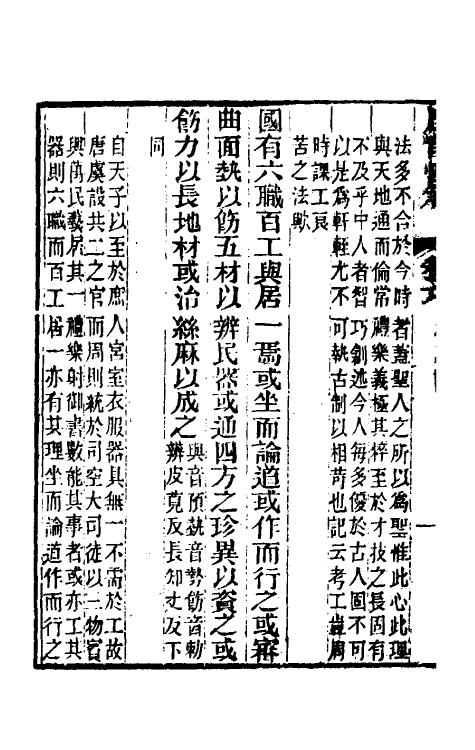 法多不合於今時者蓋聖人之所以爲聖惟此心此理
與天地通而倫常禮樂義極其梓至於才技之長固有
不及乎中人者智巧創述今人每多優於古人固不可
以是爲軒輊尤不可執古制以相苛也記云考工
時課工
苦之法歟
國有六職百工與居一焉或坐而論道或作而行之或審
曲面埶以飭五材以辨民器或通四方之珍異以資之或
飭力以長地材或治絲麻以成之與音預埶音勢飭音勑
辨皮莧反長知丈反下
同
自天子以至於庶人宮室衣服器具無一不需於工故
唐虞設共工之官而周則統於司空大司徒以三物賓
興萬民藝居其一禮樂射御書數能其事者或亦工其
器則六職而百工居一亦有其理坐而論道作而行之